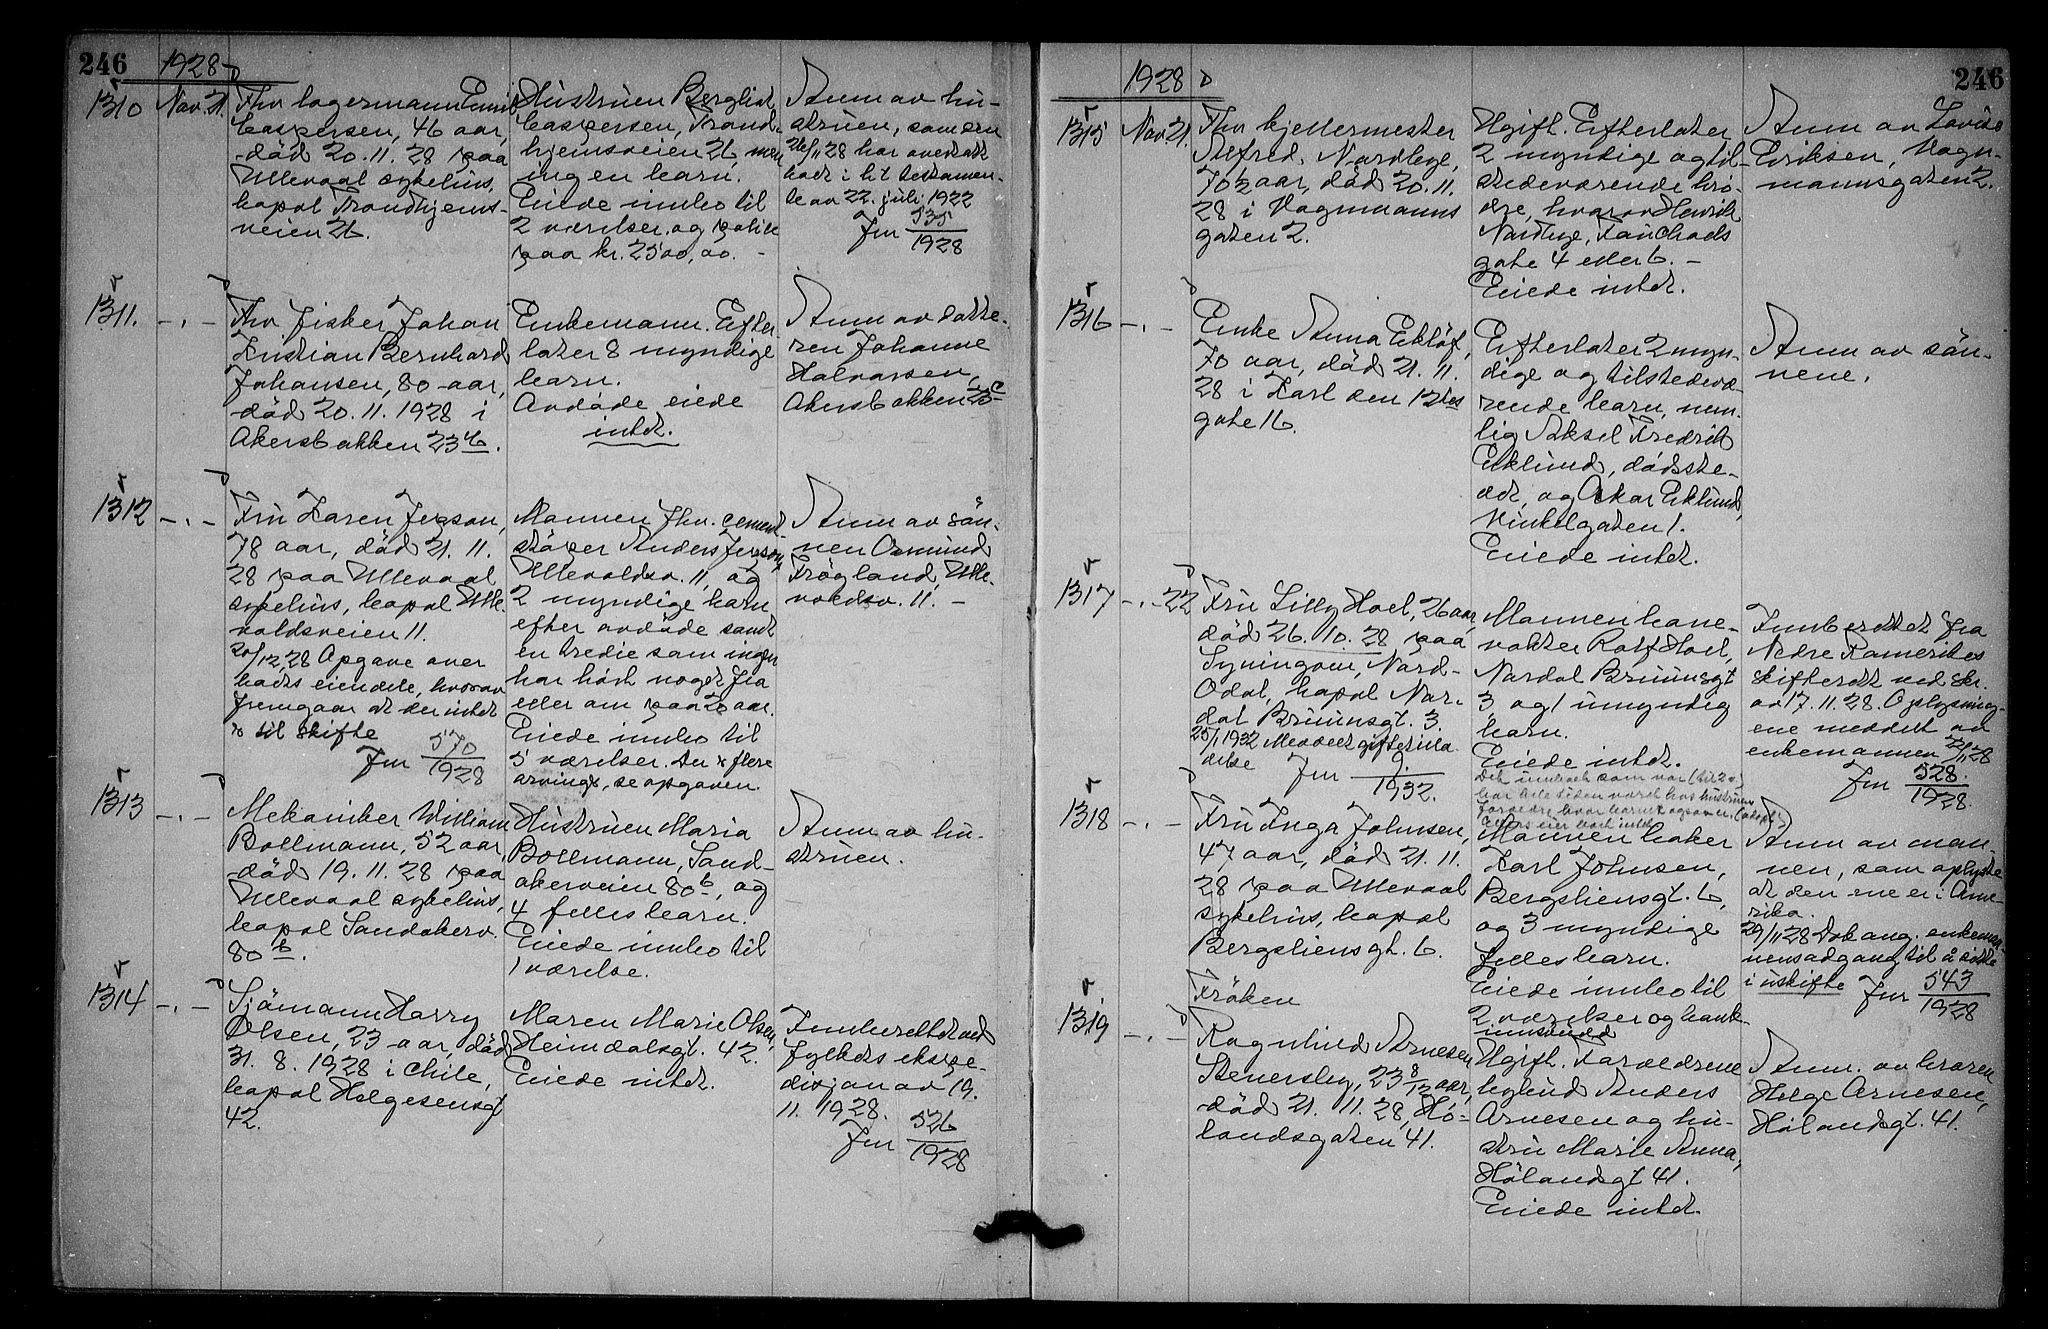 246
1928
1310
Nov. 21.
Fhv lagermann Einar
Caspersen, 46 aar,
død 20.11.28 paa
Ullevaal sykehus,
bopæl Trondhjems-
veien 26.
Hustruen Bergliot
Caspersen, Trond-
hjemsveien 26, men
ingen barn.
Eiede innbo til
2 værelser og polise
paa kr. 2500,00. -
Anm av hu-
struen, som den
26/11 28 har overtatt
boet i h.t. testamen-
te av 22. juli 1922
Jnr 535/1928
1311.
-"-
Fhv fisker Johan
Kristian Bernhard
Johansen, 80 aar,
død 20.11.1928 i
Akersbakken 23
Enkemann. Efter-
later 8 myndige
barn.
Avdøde eiede
intet.
Anm av datte-
ren Johanne
Halvorsen,
Akersbakken
1312
-"-
Fru Karen Jepson,
78 aar, død 21.11.
28 paa Ullevaal
sykehus, bopæl Ulle-
voldsveien 11.
20/12 28 Opgave over
boets eiendele, hvorav
fremgaar at der intet
er til skifte
Jnr 570/1928
Mannen fhv. cement-
støper Anders Jepson,
Ullevoldsv. 11, og
2 myndige barn
efter avdøde samt
en tredie som ingen
har hørt noget fra
eller om paa 20 aar.
Eiede innbo til
5 værelser. Der er flere
arvinger, se opgaven.
Anm av søn-
nen Osmund
Frøgland, Ulle-
voldsv. 11. -
1313
-"-
Mekaniker William
Bollmann, 52 aar,
død 19.11.28 paa
Ullevaal sykehus,
bopæl Sandakerv.
80 b.
Hustruen Maria
Bollmann, Sand-
akerveien 80 b, og
4 felles barn.
Eiede innbo til
1 værelse.
Anm av hu-
struen.
1314
-"-
Sjömann Harry
Olsen, 23 aar, død
31.8.1928 i Chile,
bopæl Helgesensgt
42.
Maren Marie Olsen,
Heimdalsgt. 42.
Eiede intet.
Innberettet ved
fylkets ekspe-
disjon av 19.
11. 1928.
Jnr 526/1928
1928
246
1315
Nov. 21.
Fhv kjellermester
Alfred Nordbye,
70 aar, død 20.11.
28 i Vognmanns
gaten 2.
Ugift. Efterlater
2 myndige og til-
stedeværende brø-
dre, hvorav Henrik
Nordbye, Fauchalds
gate 4 eller 6. -
Eiede intet.
Anm av Lovise
Eriksen, Vogn-
mannsgaten 2.
1316
-"-
Enke Anna Eklöf,
70 aar, død 21.11.
28 i Karl den 12tes
gate 16.
Efterlater 2 myn-
dige og tilstedevæ-
rende barn, nem-
lig Aksel Fredrik
Eklund, dødsste-
det, og Oskar Eklund,
Vinkelgaten 1.
Eiede intet.
Anm av søn-
nene.
1317
-"- 22
Fru Lilly Hoel, 26 aar,
død 26.10.28 paa
Nord-
Odal, bopæl Nor-
dal Bruunsgt. 3
25/1 1932 Meddelt giftetilla
delse Jnr 9/1932.
Mannen bane-
vokter Rolf Hoel,
Nordal Bruunsgt
3 og 1 umyndig
barn.
Eiede intet.
Det innbo som var (til 2 v.)
har hele tiden været hos hustruens
foreldre hvor barnet ogsaa er
Ellers eier boet intet
Innberettet fra
Nedre Romerikes
skifterett ved skr.
av 17.11.28. Oplysning-
ene meddelt av
enkemannen 22/11 28
Jnr 528/1928.
1318
-"-
Fru Inga Johnsen,
47 aar, død 21.11.
28 paa Ullevaal
sykehus, bopæl
Bergsliensgt. 6.
Mannen baker
Karl Johnsen,
Bergsliensgt. 6,
og 3 myndige
felles barn.
Eiede innbo til
2 værelser og bank-
innskudd
Anm av man-
nen, som oplyste
at den ene er i Ame-
rika.
29/11 28 Dok ang. enkeman-
nens adgang til å sitte
i uskifte Jnr 543/1928
1319
-"-
Frøken
Ragnhild Arnesen
Stenersby, 23 8/12 aar,
død 21.11.28, Hø-
landsgaten 41.
Ugift. Forældrene
bybud Anders
Arnesen og hu-
stru Marie Anna,
Hølandsgt 41.
Eiede intet.
Anm. av broren
Helge Arnesen,
Hølandsgt. 41.